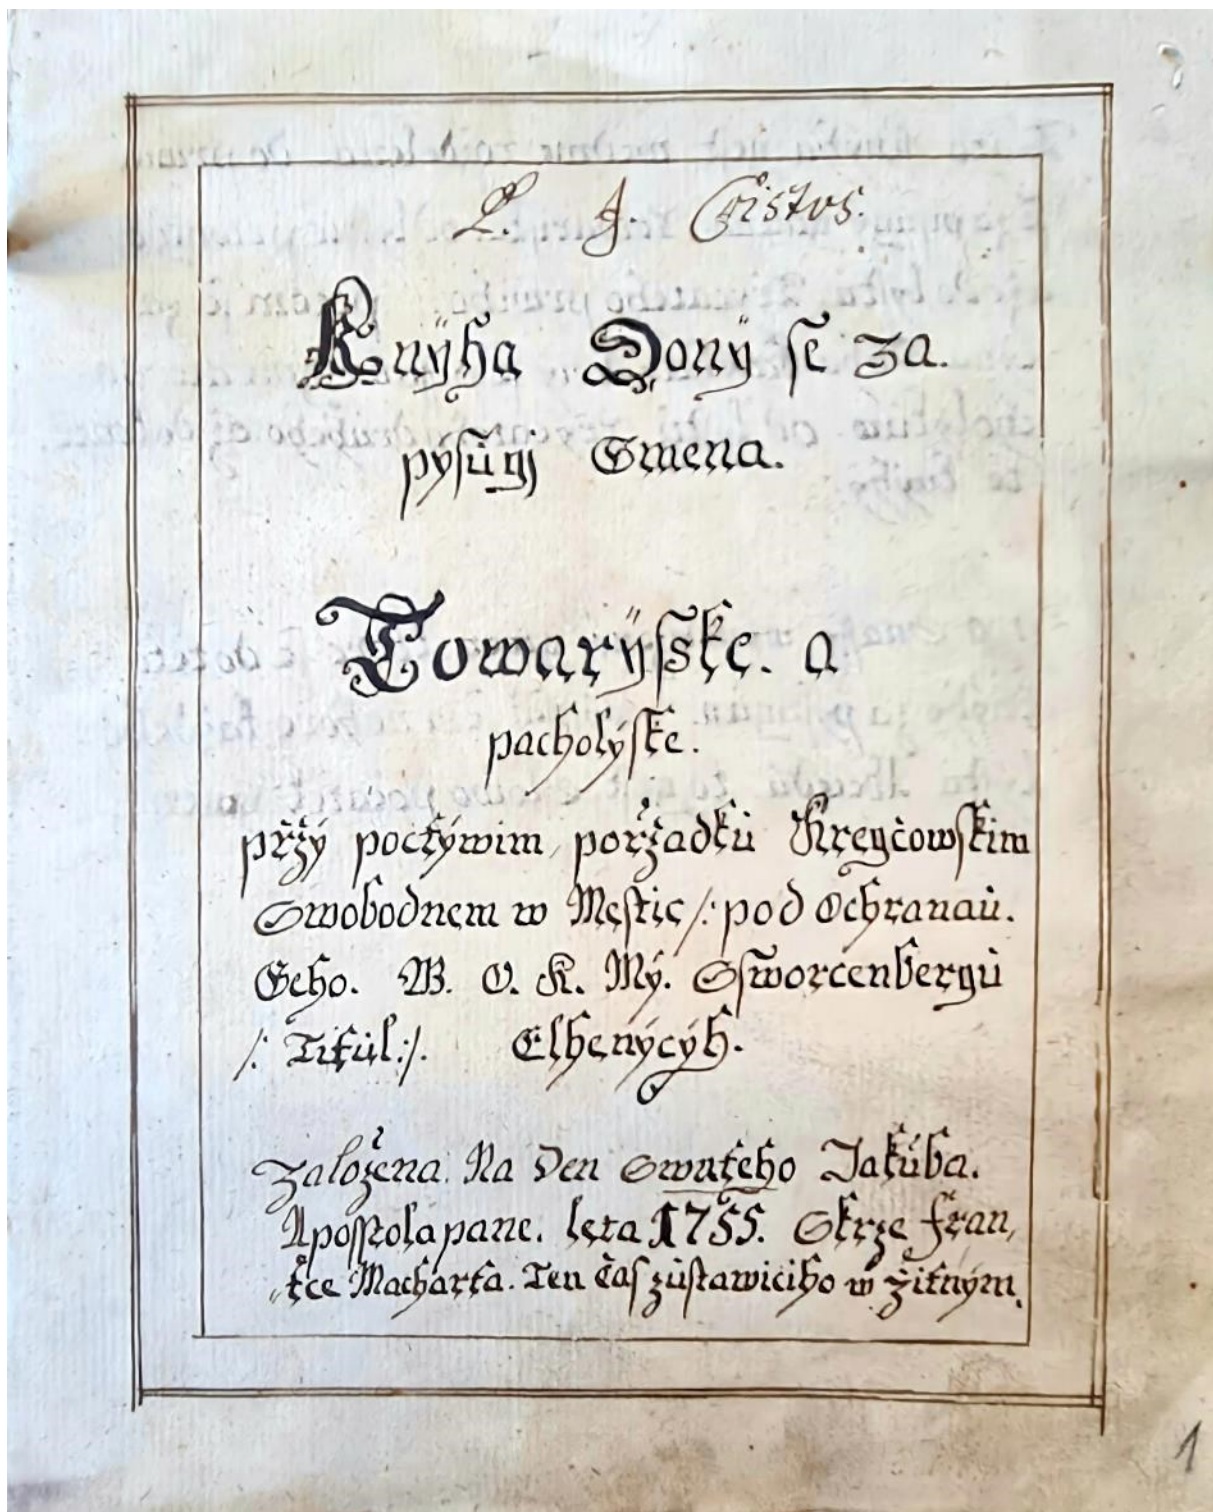 P. J. Cristus.
Knÿha Donÿ se za.
pÿsûgj Gmena.
Towarÿsske. a
pacholÿske.
przÿ poctÿwim porzadkù Kregčowskim
Swobodnem w Mestie /: pod Ochranaù.
Geho. W. O. K. Mÿ. Sswortcenbergù
/: Titùl :/. Elhenÿcÿh.
Založena. Na Den Swateho Jakùba.
Aposstola pane. leta 1755. Skrze Fran,
„tce Macharta. Ten čas zùstawiciho w žitnÿm.
1